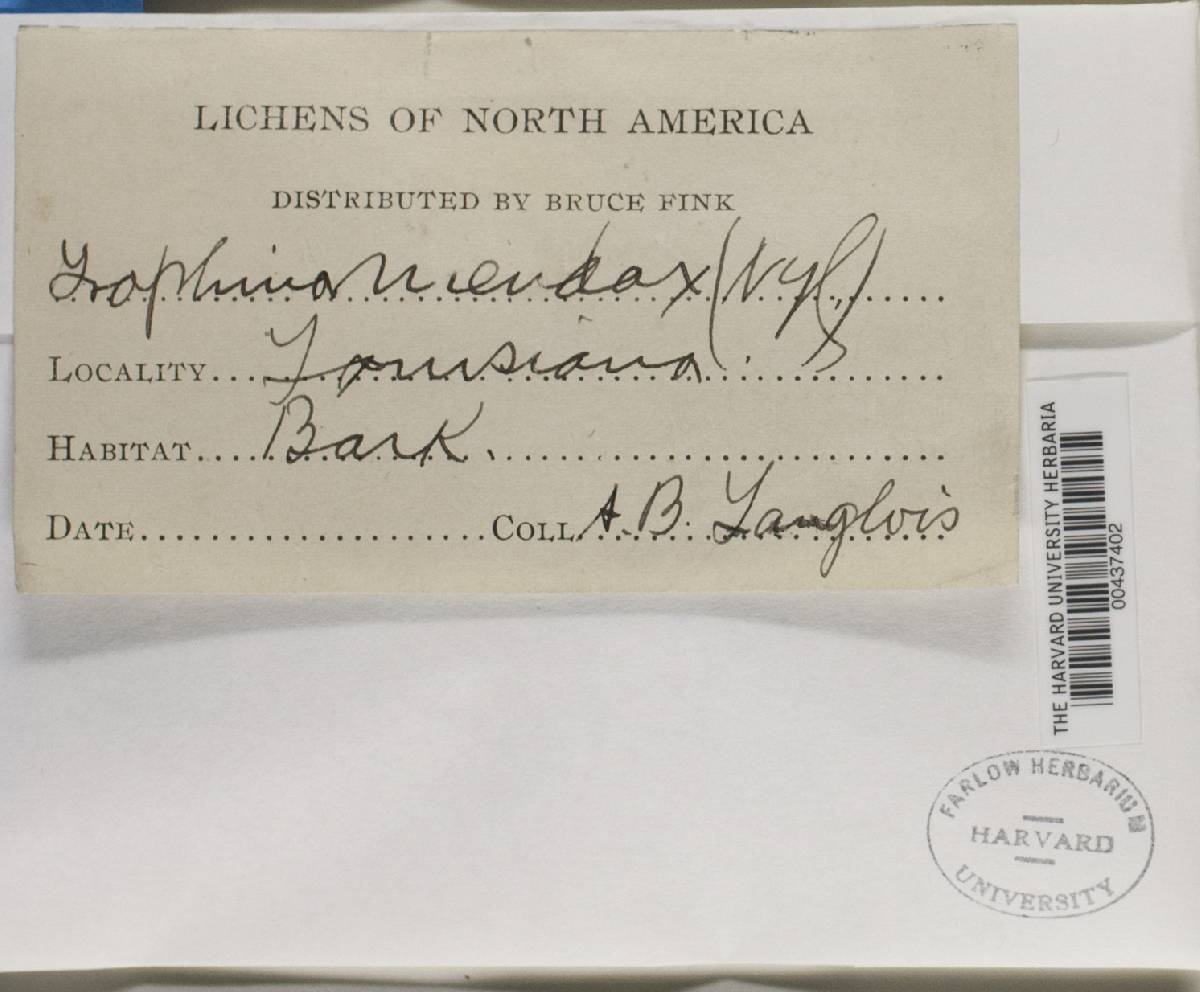 LICHENS OF NORTH AMERICA
DISTRIBUTED BY BRUCE FINK
Graphina mendax (Nyl.)
LOCALITY... Louisiana
HABITAT.... Bark.
DATE.................... COLL. A. B. Langlois
THE HARVARD UNIVERSITY HERBARIA
00437402
FARLOW HERBARIUM
HARVARD
UNIVERSITY